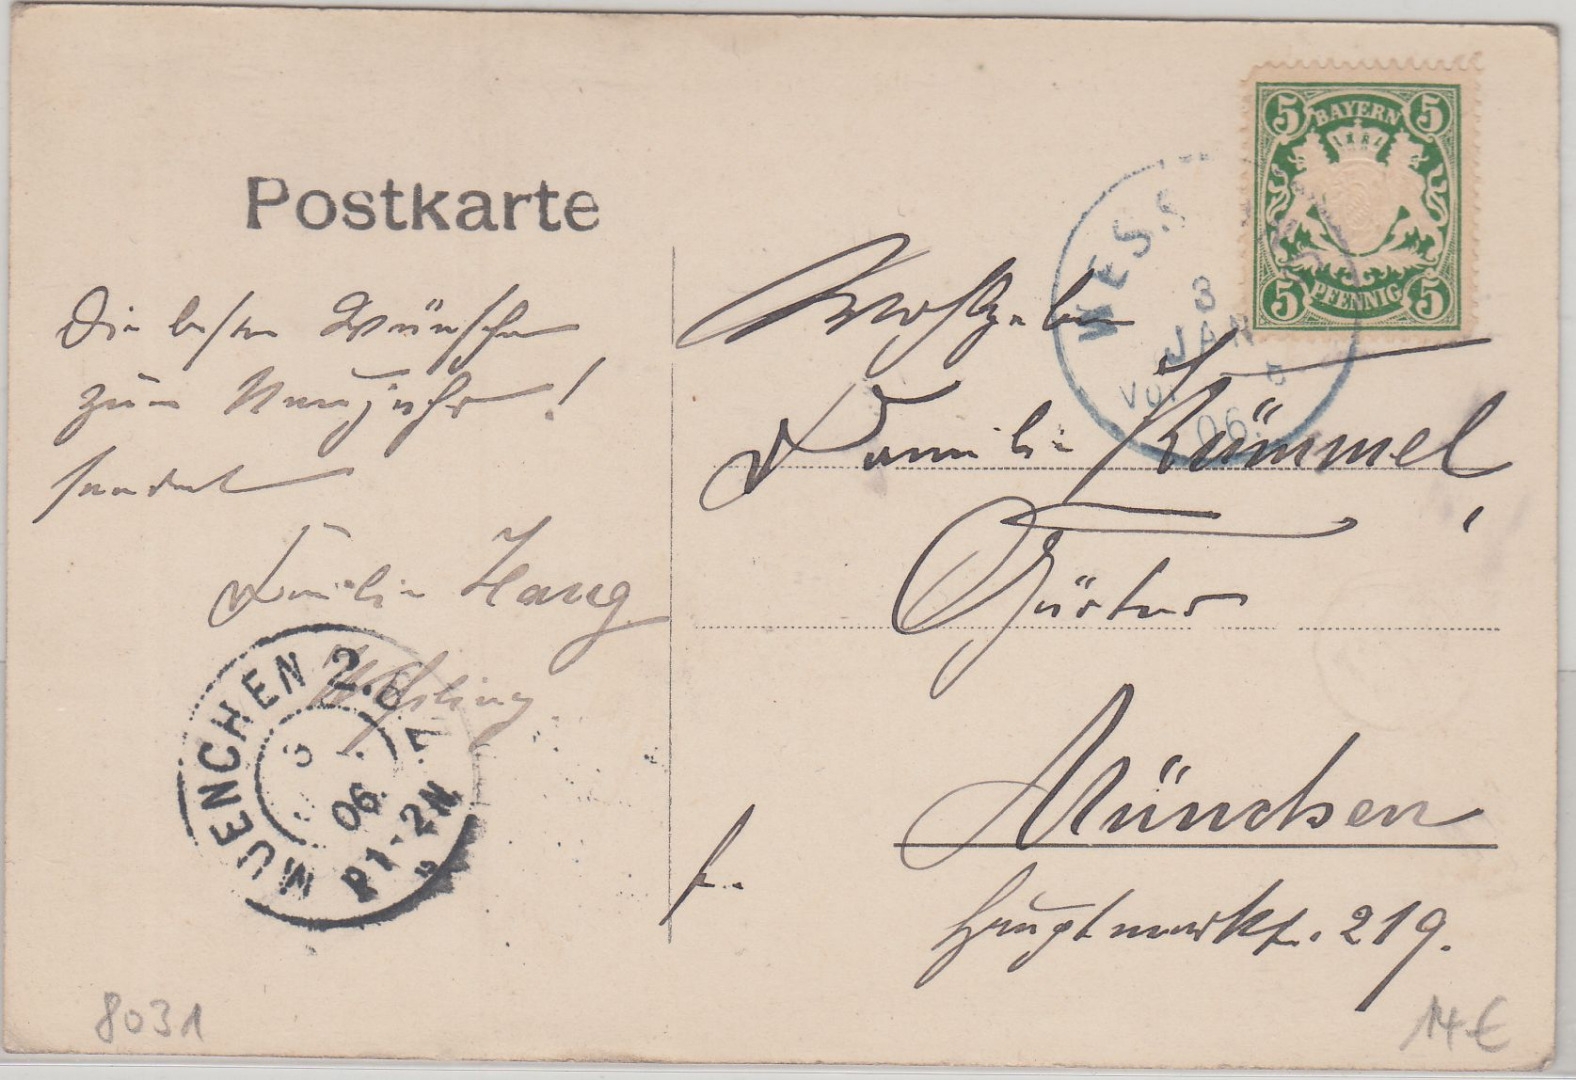 Postkarte
Die besten Wünsche
zum Neujahr!
sendet
Familie Haug
Weßling
MUENCHEN 2.B.Z.
3
06
P1-2N
5 BAYERN 5
5 PFENNIG 5
WESS
3
JAN
Vor
06
Wohlgeb.
Familie Kümmel,
Gärtner
München
Hauptmarkt. 219.
8031
14€